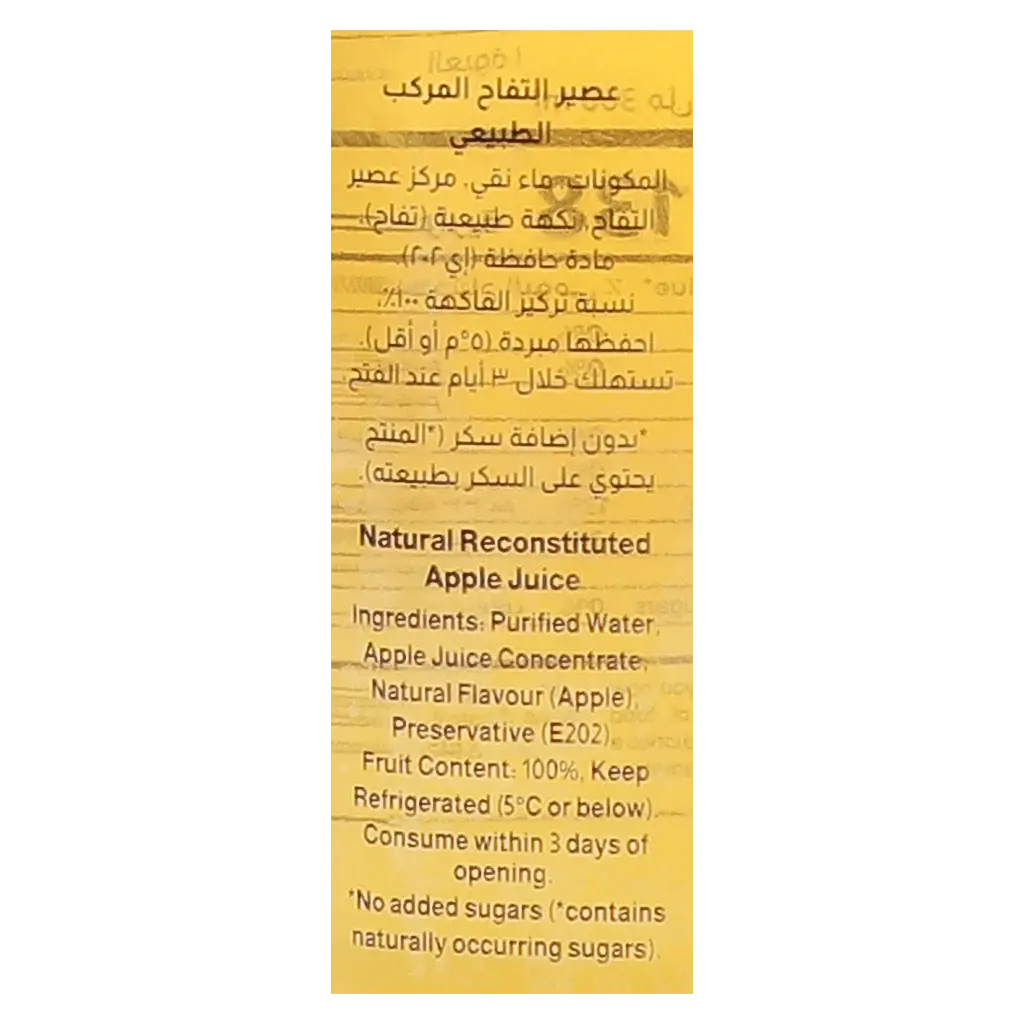 عصير التفاح المركب
الطبيعي
المكونات: ماء نقي، مركز عصير
التفاح، نكهة طبيعية (تفاح)،
مادة حافظة (إي٢٠٢).
نسبة تركيز الفاكهة ١٠٠٪،
احفظها مبردة (٥°م أو أقل).
تستهلك خلال ٣ أيام عند الفتح.
*بدون إضافة سكر (*المنتج
يحتوي على السكر بطبيعته).
Natural Reconstituted
Apple Juice
Ingredients: Purified Water,
Apple Juice Concentrate,
Natural Flavour (Apple),
Preservative (E202).
Fruit Content: 100%, Keep
Refrigerated (5°C or below).
Consume within 3 days of
opening.
*No added sugars (*contains
naturally occurring sugars).